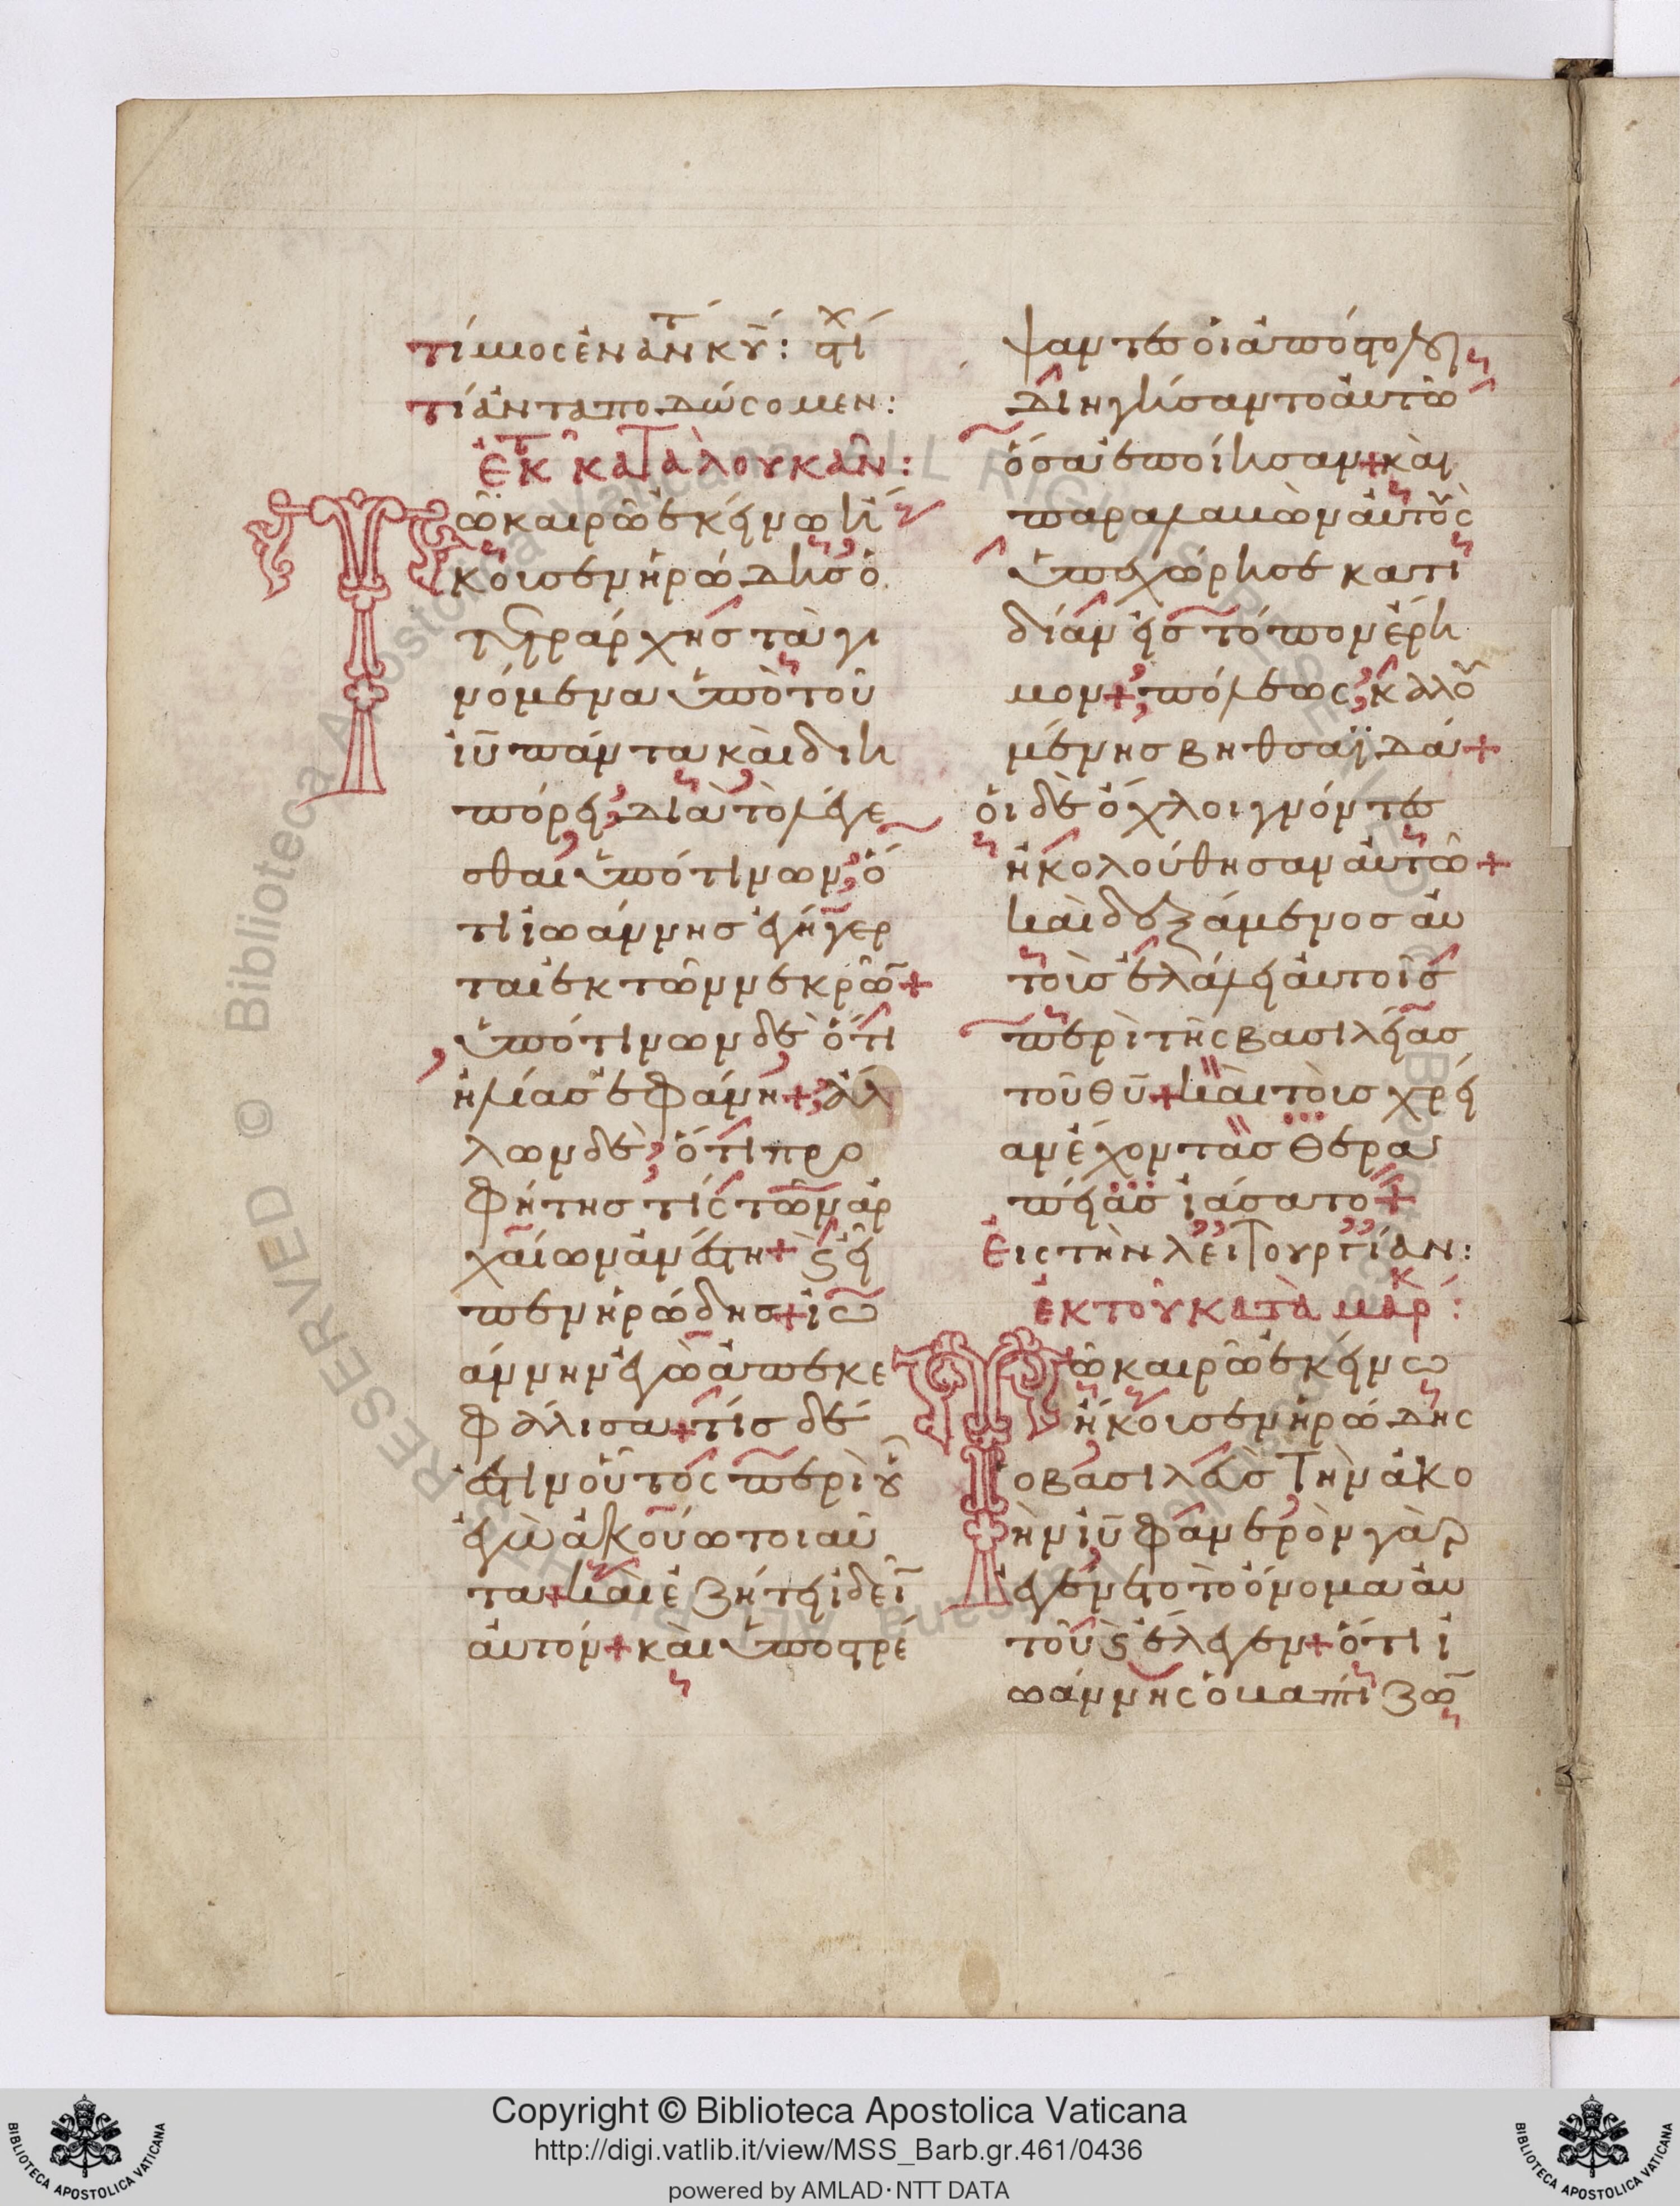 τίμιοσἐναντκυ: στιχ
τίἀνταποδώσομεν:
ἐκτ κατὰλουκᾶν:
Τῶκαιρῶἐκείνωἤ
κουσενἡρώδησὁ
τετράρχηστὰγι
νόμεναὑπὸτοῦ
ἰῦπάντακαὶδιη
πόρει διὰτὸλέγε
σθαιὑπότινων ὅ
τιἰωάννησἐγήγερ
ταιἐκτῶννεκρῶ+
ὑπότινωνδὲὅτι
ἡλίασἐφάνη+ἄλ
λωνδὲ ὅτιπρο
φήτηστίςτῶναρ
χαίωνἀνέστη+ϛεἶ
πενἡρώδησ+ἰω
άννηνἐγὼἀπεκε
φάλισα+τίσδέ
ἐστινοὗτόςπερὶοὗ
ἐγὼἀκούωτοιαῦ
τα+καὶἐζήτειἰδεῖ
ἀυτόν+καὶὑποστρέ
ψαντεσὁιἀπόστολοι
διηγήσαντοἀυτῶ
ὅσαἐποίησαν+καὶ
παραλαβὼνἀυτοὺς
ὑπεχώρησεκατι
δίανεἰστόπονἔρη
μον+πόλεως καλου
μένησβηθσαϊδά+
ὁιδὲὄχλοιγνόντεσ
ἠκολούθησαναυτῶ+
καὶδεξάμενοσἀυ
τοὺσἐλάλειἀυτοῖσ
περὶτῆςβασιλείασ
τοῦθῦ+καὶτοὺσχρεί
ανἔχοντασθερα
πείασἰάσατο+
Ἐιςτὴνλειτουργίαν:
ἐκτοῦκατὰμαρκ:
Τῶκαιρῶἐκείνω
ἤκουσενἡρώδης
ὁβασιλεὺστὴνἀκο
ὴνἰῦφανερὸνγὰρ
ἐγένετοτὸὄνομααυ
τοῦϛἔλεγεν+ὅτιἰ
ωάννηςὁβαπτίζω
Copyright © Biblioteca Apostolica Vaticana
http://digi.vatlib.it/view/MSS_Barb.gr.461/0436
powered by AMLAD·NTT DATA
BIBLIOTECA APOSTOLICA VATICANA
BIBLIOTECA APOSTOLICA VATICANA